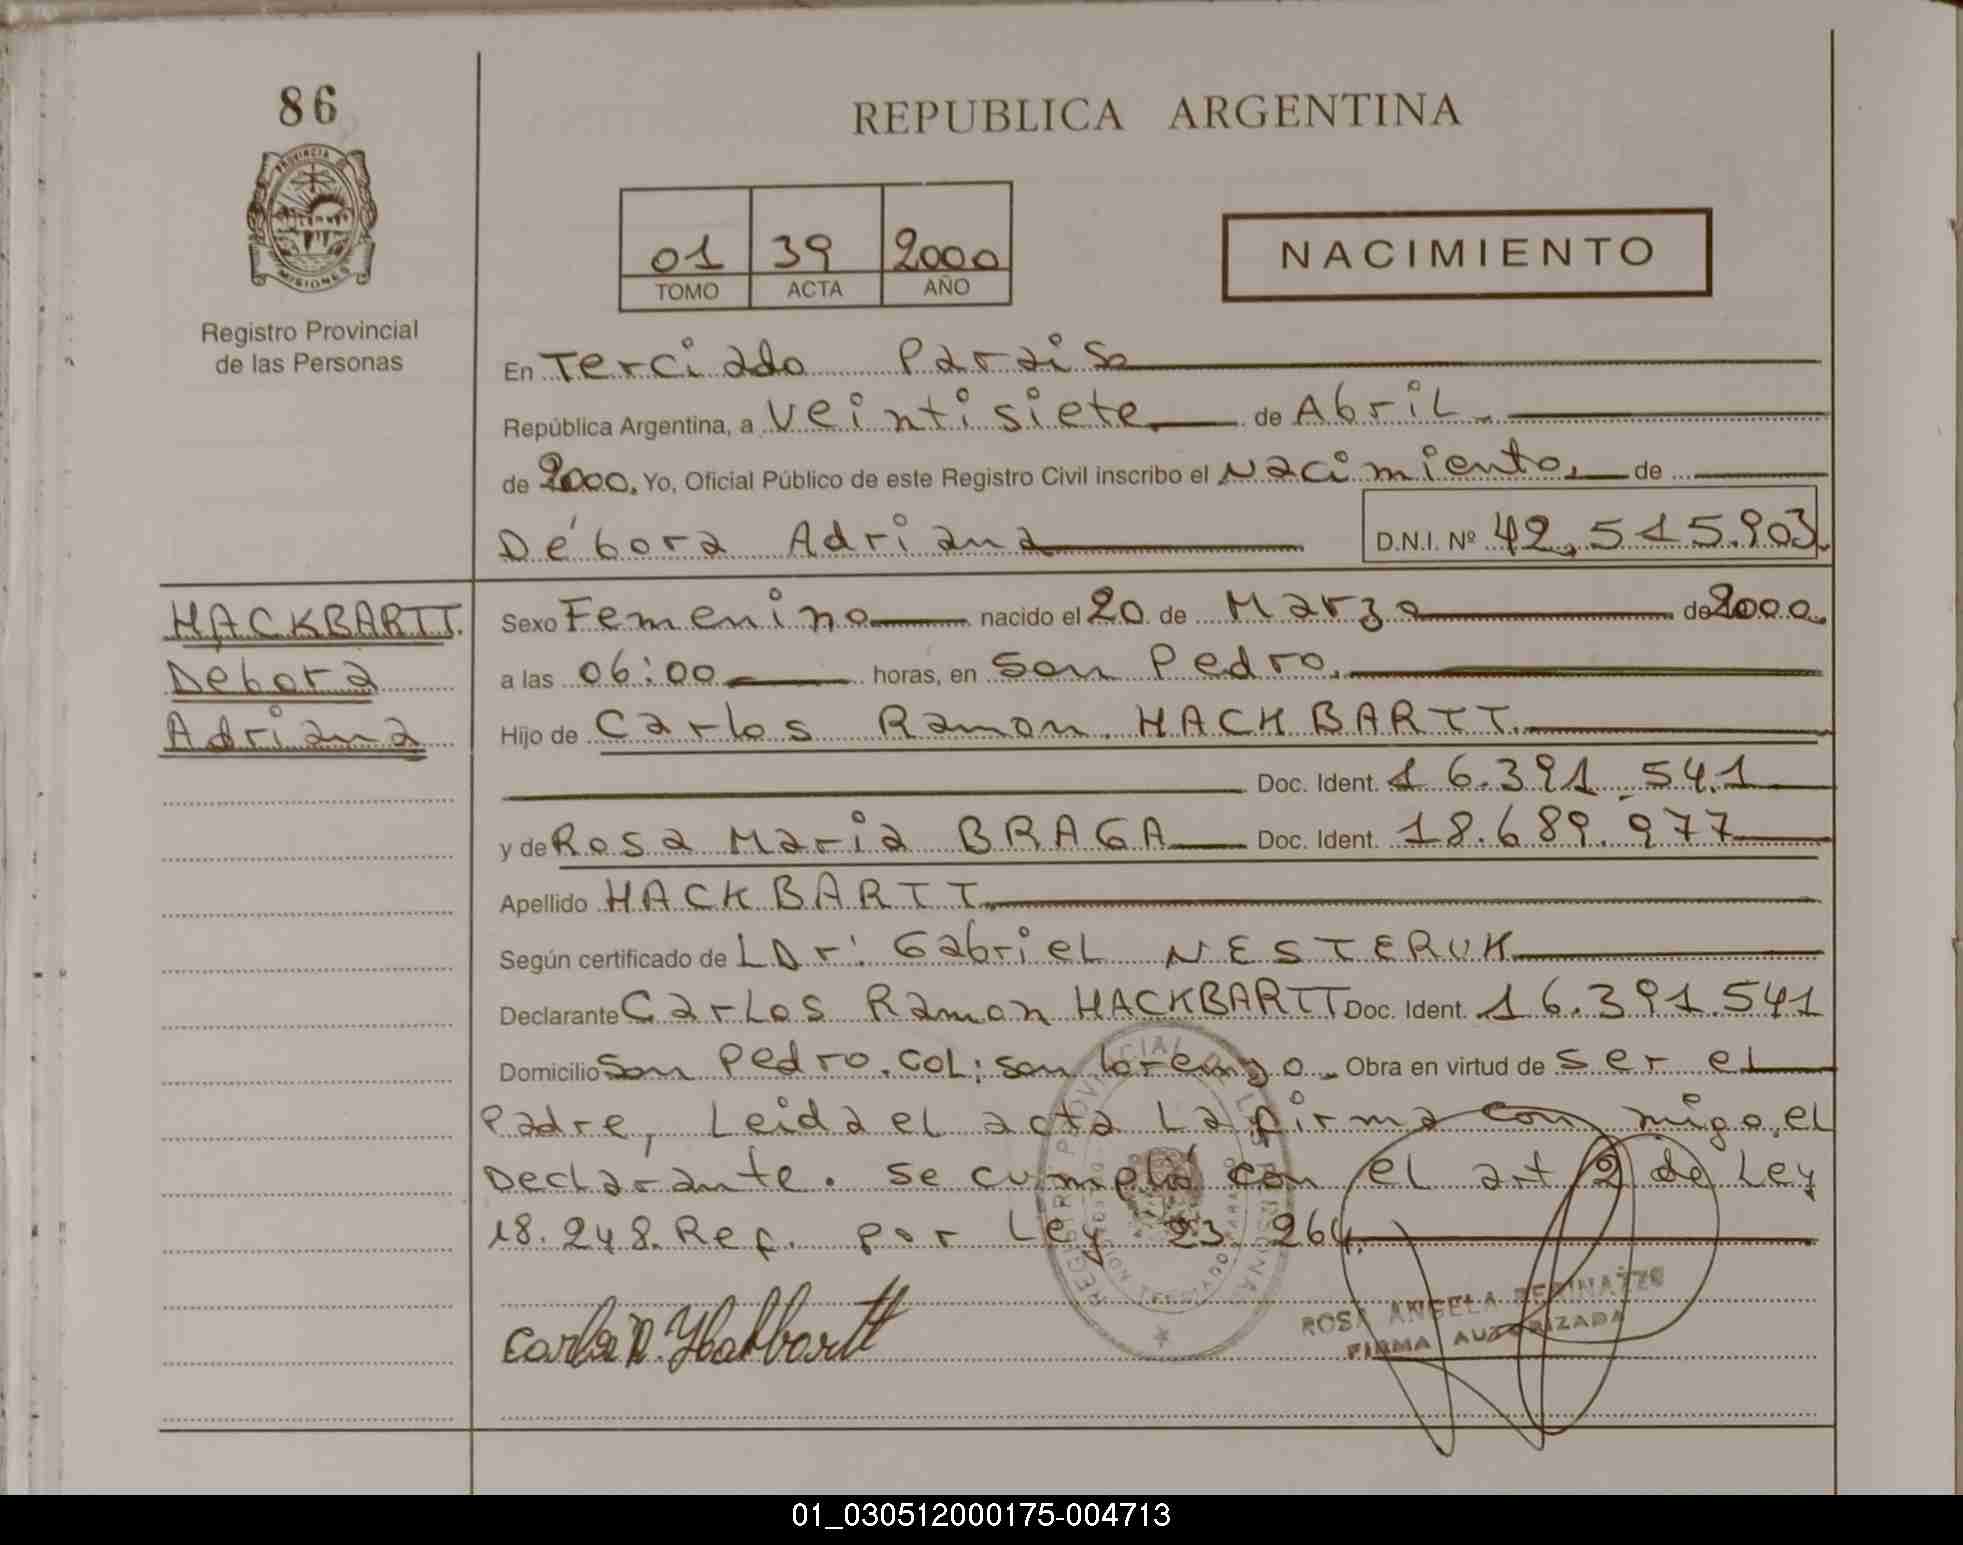 86
PROVINCIA DE
MISIONES
Registro Provincial
de las Personas
REPUBLICA ARGENTINA
01 39 2000
TOMO ACTA AÑO
NACIMIENTO
En Terciado Paraiso
República Argentina, a Veintisiete de Abril
de 2000. Yo, Oficial Público de este Registro Civil inscribo el Nacimiento, de
Débora Adriana D.N.I. Nº 42.515.903
HACKBARTT.
Debora
Adriana
Sexo Femenino nacido el 20 de Marzo de 2000
a las 06:00 horas, en San Pedro.
Hijo de Carlos Ramon HACKBARTT.
Doc. Ident. 16.391.541
y de Rosa Maria BRAGA Doc. Ident. 18.689.977
Apellido HACKBARTT.
Según certificado de L Dr: Gabriel NESTERUK
Declarante Carlos Ramon HACKBARTT Doc. Ident. 16.391.541
Domicilio San Pedro. COL; San Lorenzo. Obra en virtud de ser el
Padre, Leida el acta La firma con migo, el
Declarante. Se cumplió con el art 2 de Ley
18.248. Ref. por Ley 23.264.
Carlos R. Hakbartt
ROSA ANGELA
FIRMA AUTORIZADA
01_030512000175-004713